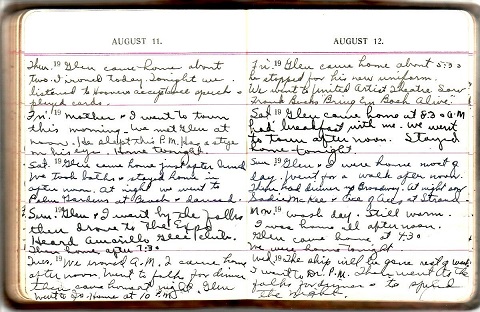 AUGUST 11.
Thu. 19 Glen came home about
two. I ironed today. Tonight we
listened to Hoovers acceptance speech &
played cards.
Fri. 19 Mother & I went to town
this morning. We met Glen at
noon. He slept this P.M. Has a stye
on his eye. Home tonight.
Sat. 19 Glen came home just after lunch
We took baths & stayed home in
after noon. At night we went to
Palm Gardens at Beach & danced.
Sun. 19 Glen & I went by the folks
then drove to the Expo
Heard Amarillo Glee Club.
Then home after 7:30
Tues. 19 We moved A.M. I came home
after noon. Went to folks for dinner
then came home at night. Glen
went to home at 10 P.M.
AUGUST 12.
Fri. 19 Glen came home about 5:30
he stopped for his new uniform.
We went to United Artist Theatre. Saw
Frank Bucks Bring Em Back Alive."
Sat. 19 Glen came home at 8:30 A.M
had breakfast with me. We went
to town after noon. Stayed
home tonight.
Sun. 19 Glen & I were home most of
day. Went for a walk after noon.
Then had dinner on Broadway. At night saw
Sadie McKee & Ace of Aces at Strand.
Mon. 19 wash day. Still warm.
I was home all afternoon.
Glen came home at 4:30
We were home tonight
Wed. 19 The ship will be gone next week
I went to Dr. P.M. Then went to the
folks for dinner & to spend
the night.